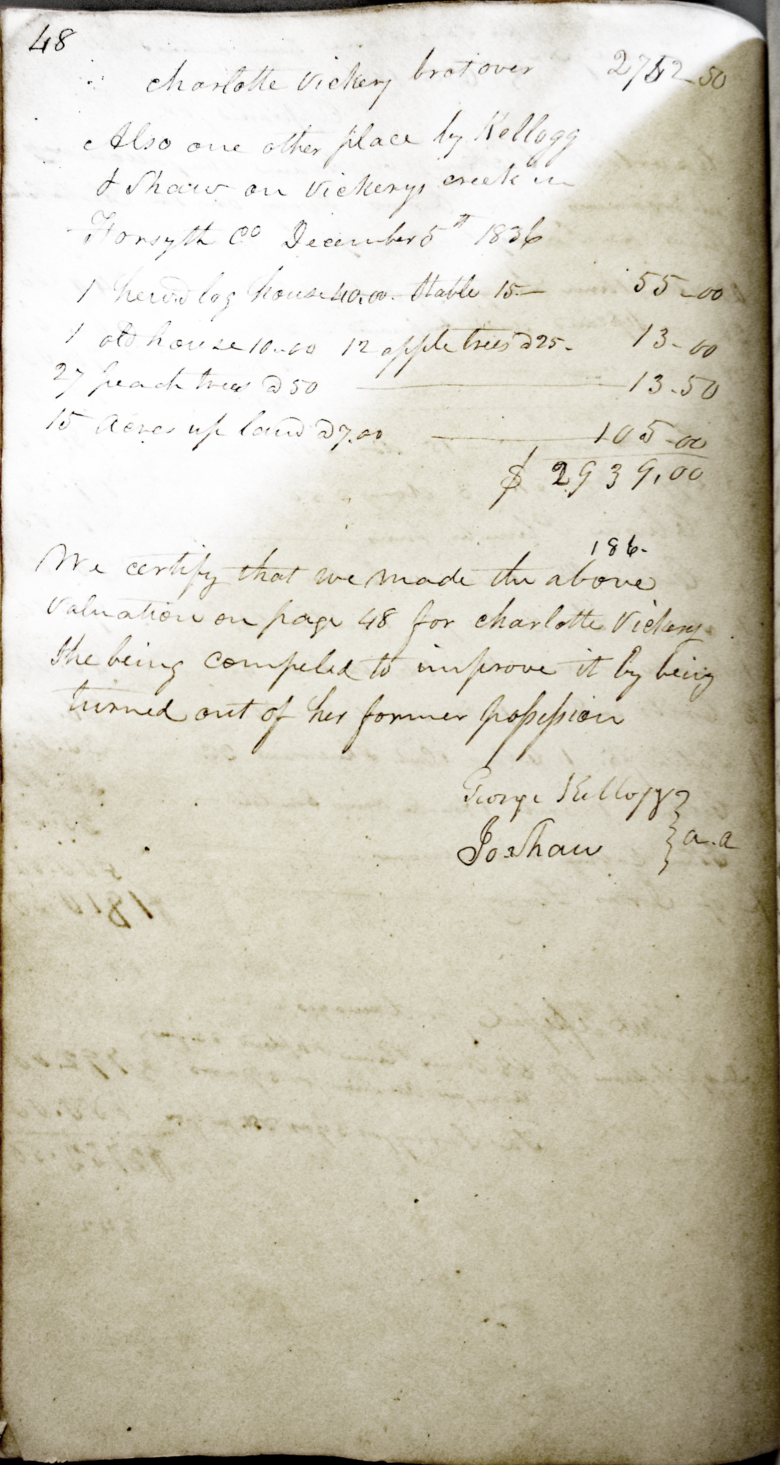 48
Charlotte Vickery brot over 2752-50
Also one other place by Kellogg
& Shaw on Vickerys creek in
Forsyth Co December 5th 1836
1 hewd log house 40.00- Stable 15- 55-00
1 old house 10-00 12 apple trees @ 25- 13-00
27 peach trees @ 50 13.50
15 acres up land @ 7.00 105-00
$ 2939,00
186-
We certify that we made the above
valuation on page 48 for charlotte Vickery
she being compeled to improve it by being
turned out of her former possession
George Kellogg
Jo Shaw } a.a